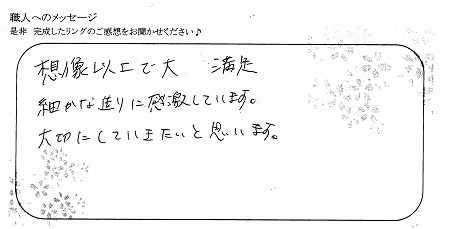 職人へのメッセージ
是非 完成したリングのご感想をお聞かせください♪
想像以上で大 満足
細かな造りに感激しています。
大切にしていきたいと思います。